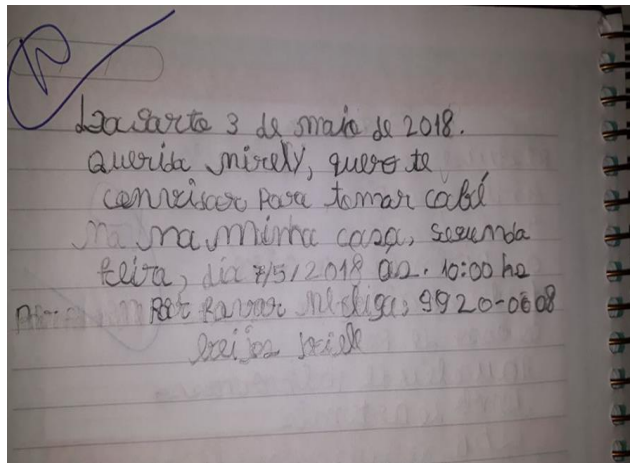 Lagarto 3 de maio de 2018.
Querida Mirely, quero te
convisar Para tomar cabé
na na minha casa, segunda
feira, dia 7/5/2018 as. 10:00 hs
Por favor me liga, 9920-0608
beijos